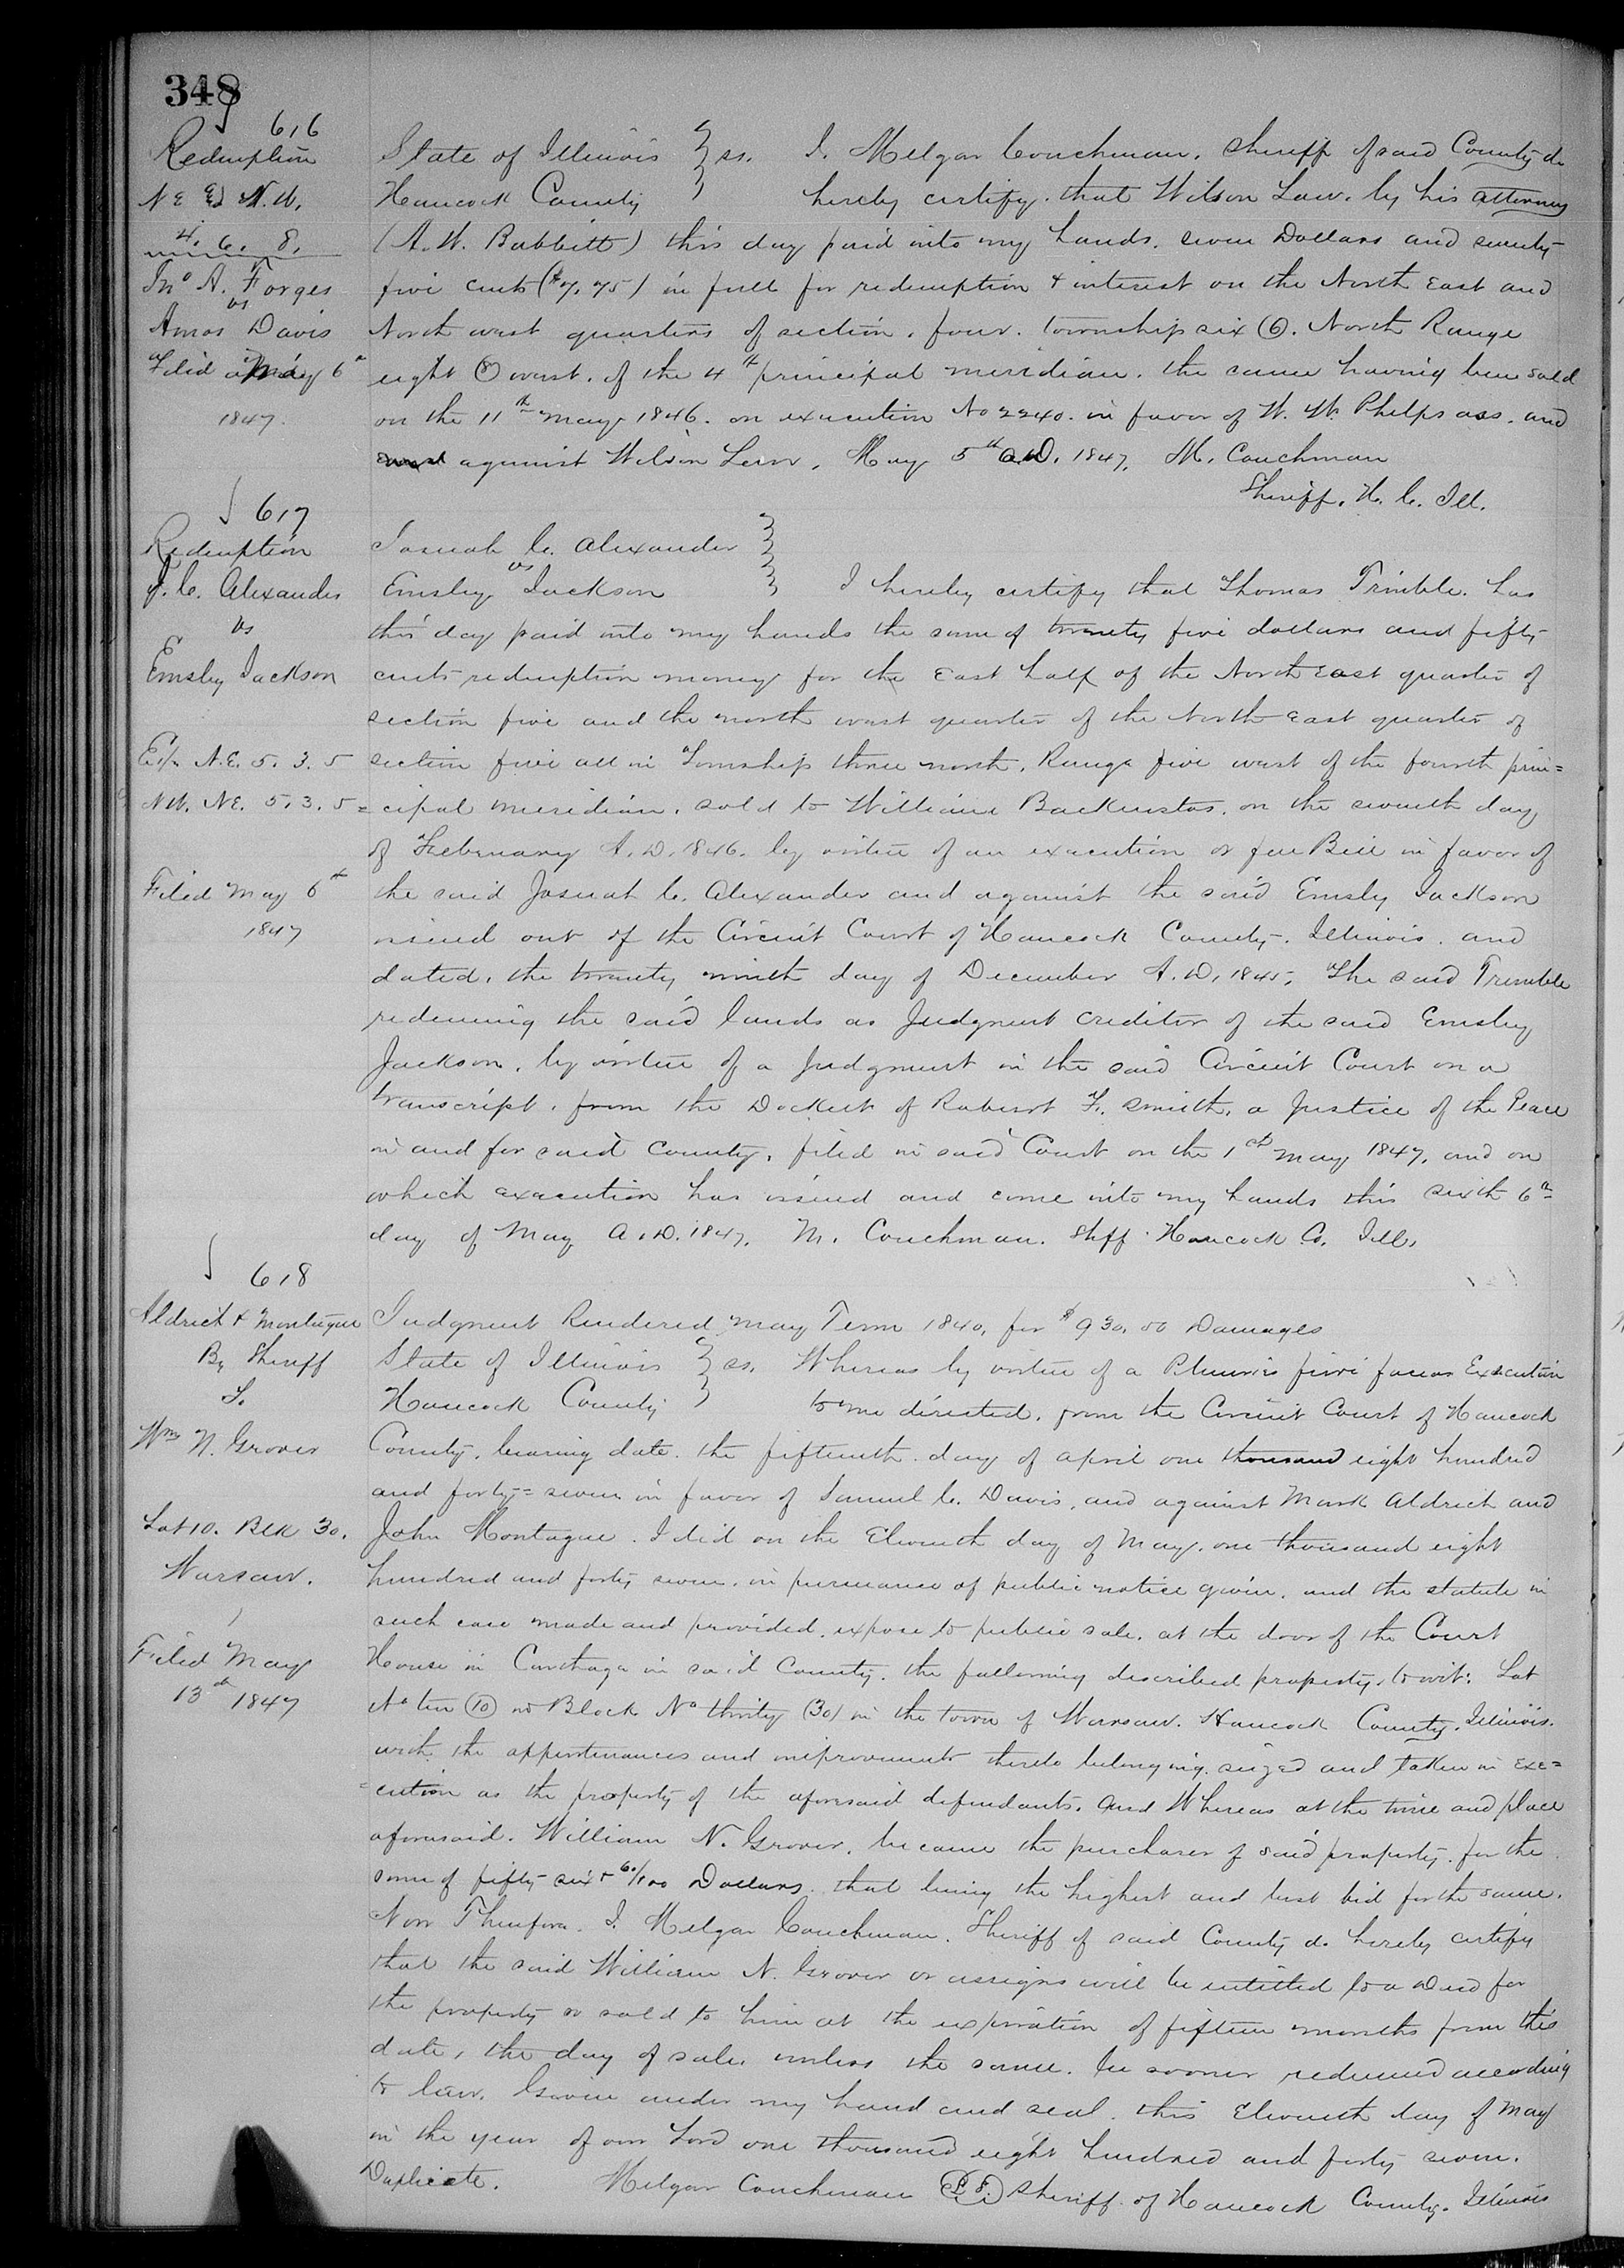 348
616
Redemption
NE & N.W.
4. 6. 8.
Jno A. Forges
vs
Amos Davis
Filed May 6th
1847.
State of Illinois } ss. I. Melgar Couchman. Sheriff of said County do
Hancock County } hereby certify. that Wilson Law. by his attorney
(A. W. Babbitt) this day paid into my hands. seven Dollars and seventy
five cents ($7.75) in full for redemption & interest on the North East and
North west quarters of section. four. township six (6). North Range
eight (8) west. of the 4th principal meridian. the same having been sold
on the 11th May. 1846. on execution No 2240. in favor of W. W. Phelps ass. and
against Wilson Law. May 5th A.D. 1847. M. Couchman
Sheriff. H. C. Ill.
617
Redemption
J. C. Alexander
vs
Emsley Jackson
E½ N.E. 5. 3. 5
NW. NE. 5. 3. 5
Filed May 6th
1847
Josuah C. Alexander }
vs
Emsley Jackson } I hereby certify that Thomas Trimble. has
this day paid into my hands the sum of twenty five dollars and fifty
cents redemption money for the East half of the North east quarter of
section five and the north west quarter of the North east quarter of
section five all in Township three north. Range five west of the fourth prin=
=cipal meridian. sold to William Backenstos. on the seventh day
of February A.D. 1846. by virtue of an execution or fee Bill in favor of
the said Josuah C. Alexander and against the said Emsley Jackson
issued out of the Circuit Court of Hancock County. Illinois. and
dated. the twenty ninth day of December A.D. 1845. The said Trimble
redeeming the said lands as Judgment creditor of the said Emsley
Jackson. by virtue of a Judgment in the said Circuit Court on a
transcript. from the Dockett of Robert F. Smith. a Justice of the Peace
in and for said County. filed in said Court on the 1st May 1847. and on
which execution has issued and come into my hands this sixth 6th
day of May A.D. 1847. M. Couchman. Shff. Hancock Co. Ills.
618
Aldrich & Montague
By Sheriff
To
Wm N. Grover
Lot 10. Blk 30.
Warsaw.
Filed May
13th 1847
Judgment Rendered May Term 1840. for $930.50 Damages
State of Illinois } ss. Whereas by virtue of a Pluries fieri facias Execution
Hancock County } to me directed. from the Circuit Court of Hancock
County. bearing date. the fifteenth. day of April one thousand eight hundred
and forty=seven in favor of Samuel C. Davis. and against Mark Aldrich and
John Montague. I did on the Eleventh day of May. one thousand eight
hundred and forty seven. in pursuance of public notice given. and the statute in
such case made and provided. expose to public sale. at the door of the Court
House in Carthage in said County. the following described property. to wit: Lot
No ten (10) in Block No thirty (30) in the town of Warsaw. Hancock County. Illinois.
with the appertenances and improvements thereto belonging. seized and taken in exe=
=cution as the property of the aforesaid defendants. And Whereas at the time and place
aforesaid. William N. Grover. became the purchaser of said property. for the
sum of fifty-six & 60/100 Dollars. that being the highest and best bid for the same.
Now Therefore. I. Melgar Couchman. Sheriff of said County do hereby certify
that the said William N. Grover or assigns will be entitled to a Deed for
the property so sold to him at the expiration of fifteen months from this
date, the day of sale. unless the same. be sooner redeemed according
to law. Given under my hand and seal. this Eleventh day of May
in the year of our Lord one thousand eight hundred and forty seven.
Duplicate. Melgar Couchman (L.S.) Sheriff of Hancock County. Illinois